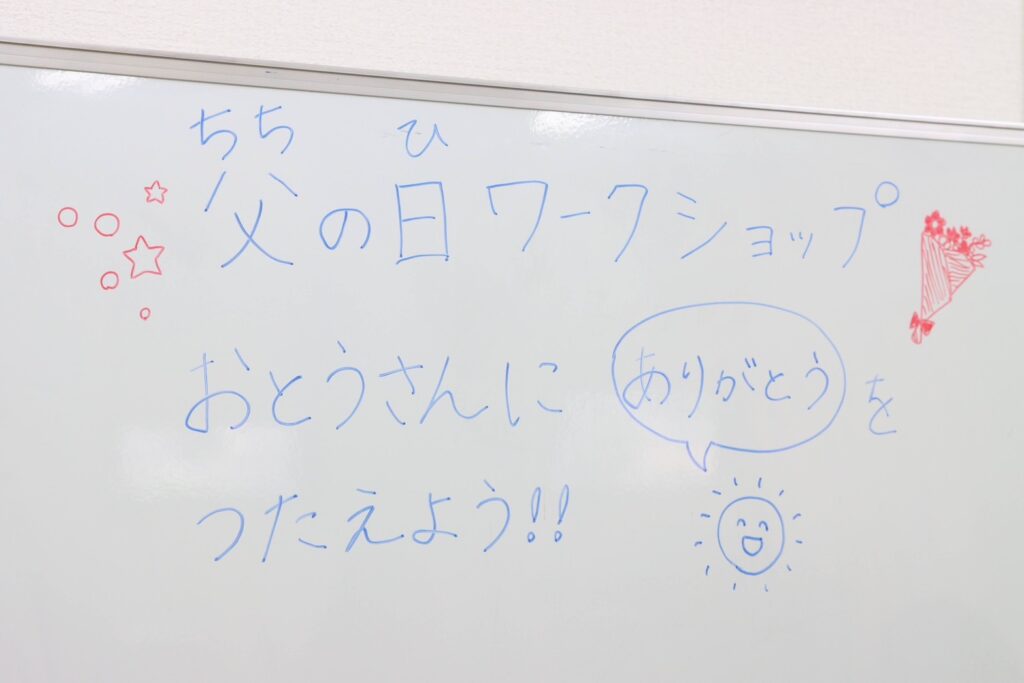 ちち ひ
父の日ワークショップ
おとうさんに ありがとう を
つたえよう!!